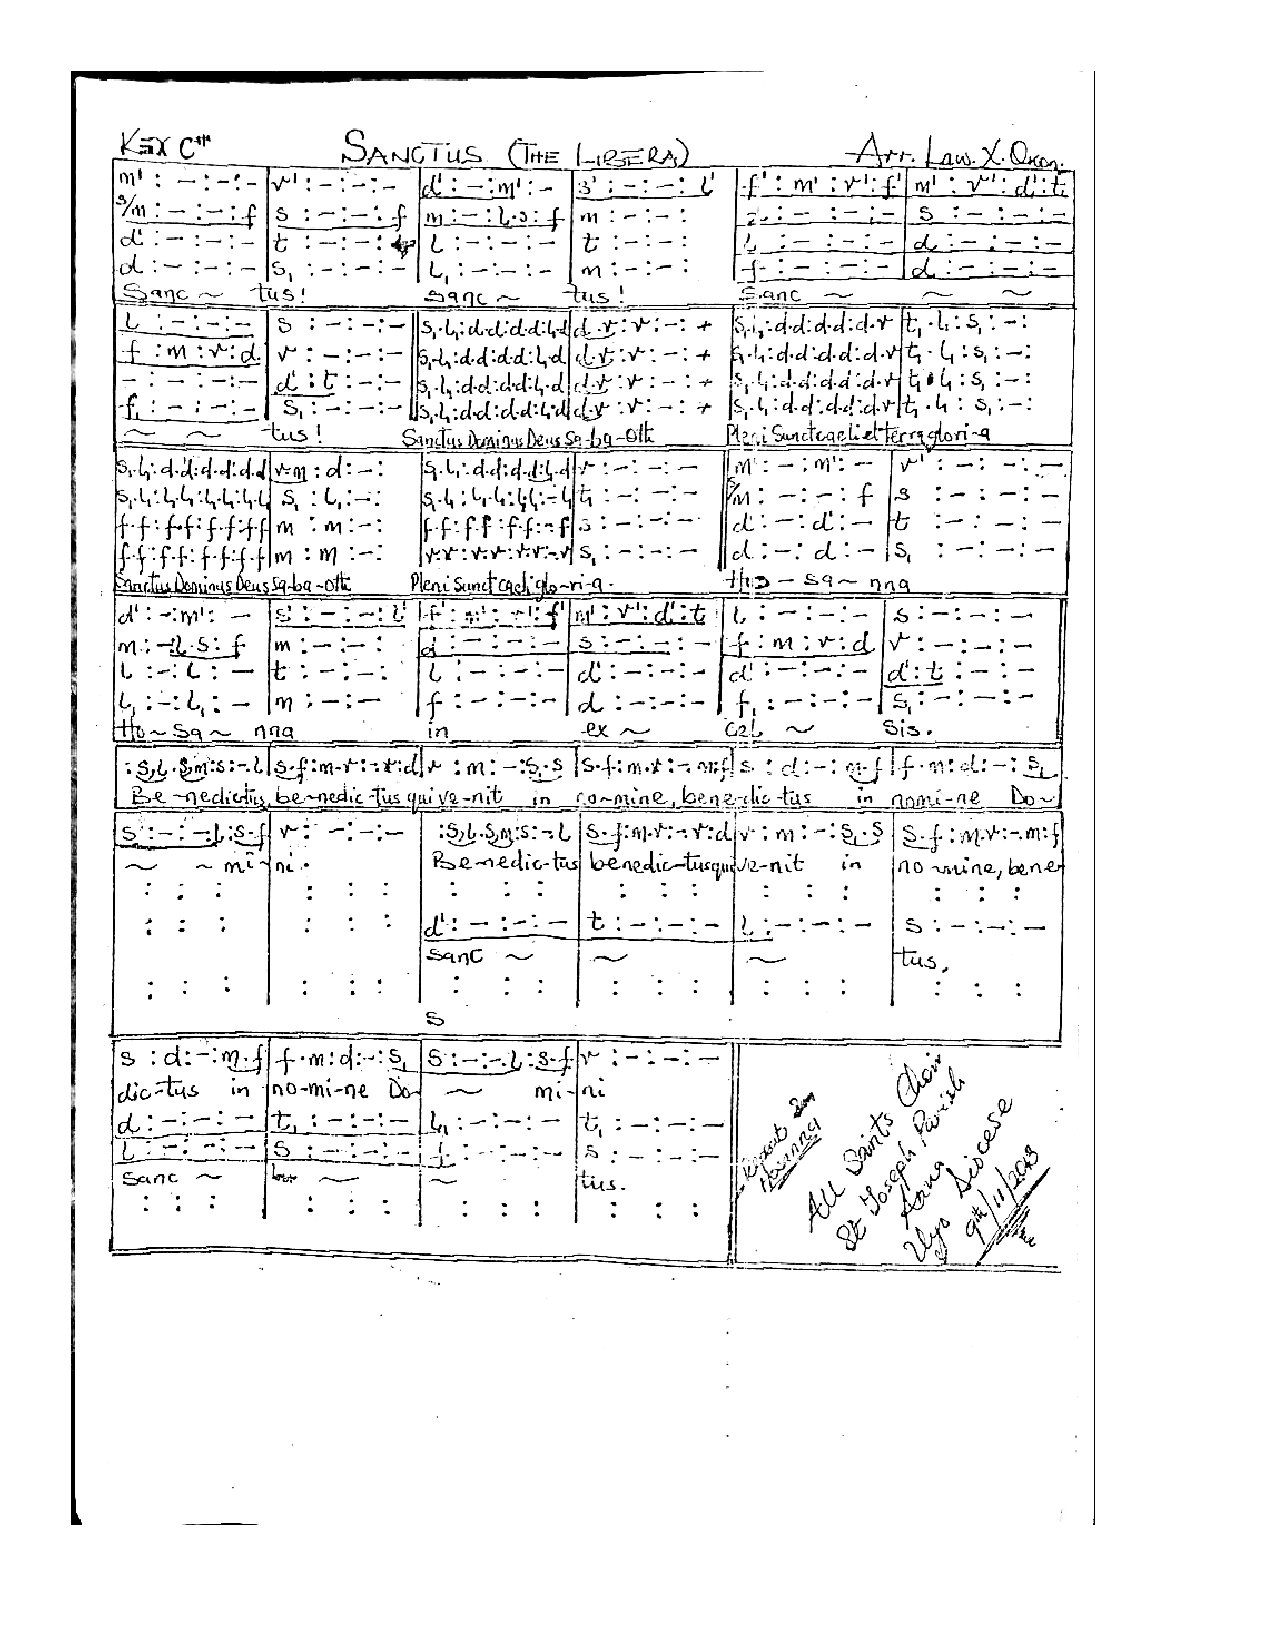 KEY C SANCTUS (THE LIBERA) Arr. Law. X.
m' : – : – : – | r' : – : – : – | d' : – : m' : – | s' : – : – : l' | f' : m' : r' : f' | m' : r' : d' : t
s/m : – : – : f | s : – : – : f | m : – : l . s : f | m : – : – : | : – : – : – | s : – : – : –
d' : – : – : – | t : – : – : | l : – : – : – | t : – : – : | l : – : – : – | d : – : – : –
d : – : – : – | s₁ : – : – : – | l₁ : – : – : – | m : – : – : | f : – : – : – | d : – : – : –
Sanc ~ tus! Sanc ~ tus! Sanc ~ ~ ~
l : – : – : – | s : – : – : – | s₁.l₁:d.d:d.d:l₁.d | d.r : r : – : + | s₁.l₁:d.d:d.d:d.r | t₁.l₁ : s₁ : – :
f : m : r : d | r : – : – : – | s₁.l₁:d.d:d.d:l₁.d | d.r : r : – : + | s₁.l₁:d.d:d.d:d.r | t₁.l₁ : s₁ : – :
– : – : – : – | d' : t : – : – | s₁.l₁:d.d:d.d:l₁.d | d.r : r : – : + | s₁.l₁:d.d:d.d:d.r | t₁.l₁ : s₁ : – :
f₁ : – : – : – | s₁ : – : – : – | s₁.l₁:d.d:d.d:l₁.d | d.r : r : – : + | s₁.l₁:d.d:d.d:d.r | t₁.l₁ : s₁ : – :
~ ~ tus! Sanctus Dominus Deus Sa-ba-oth Pleni Sunt caeli et terra glori-a
s₁.l₁:d.d:d.d:d.d | r.m : d : – : | s₁.l₁:d.d:d.d:l₁.d | r : – : – : – | m' : – : m' : – | r' : – : – : –
s₁.l₁:l₁.l₁:l₁.l₁:l₁.l₁ | s₁ : l₁ : – : | s₁.l₁:l₁.l₁:l₁.l₁:–.l₁ | t₁ : – : – : – | s/m : – : – : f | s : – : – : –
f.f:f.f:f.f:f.f | m : m : – : | f.f:f.f:f.f:–.f | s : – : – : – | d' : – : d' : – | t : – : – : –
f.f:f.f:f.f:f.f | m : m : – : | r.r:r.r:r.r:–.r | s₁ : – : – : – | d : – : d : – | s₁ : – : – : –
Sanctus Dominus Deus Sa-ba-oth Pleni Sunt Caeli glo-ri-a. Ho – sa ~ nna
d' : – : m' : – | s' : – : – : l' | f' : m' : r' : f' | m' : r' : d' : t | l : – : – : – | s : – : – : –
m : – : l . s : f | m : – : – : | d : – : – : – | s : – : – : – | f : m : r : d | r : – : – : –
l : – : l : – | t : – : – : | l : – : – : – | d' : – : – : – | d' : – : – : – | d' : t : – : –
l₁ : – : l₁ : – | m : – : – : – | f : – : – : – | d : – : – : – | f₁ : – : – : – | s₁ : – : – : –
Ho ~ sa ~ nna in ex ~ cel ~ sis.
: s₁.l.s.m : s : –.l | s.f : m.r : –.r : d | r : m : – : s₁.s | s.f : m.r : –.m : f | s : d : – : m.f | f.m : d : – : s₁
Be-nedictus, be-nedic-tus qui ve-nit in no-mine, benedic-tus in nomi-ne Do~
s : – : –.l : s.f | r : – : – : – | : s₁.l.s.m : s : –.l | s.f : m.r : –.r : d | r : m : – : s₁.s | s.f : m.r : –.m : f
~ ~ mi-ni. Be-nedic-tus benedic-tus qui ve-nit in no mine, bene
: : : | : : : | : : : | : : : | : : : | : : :
: : : | : : : | d' : – : – : – | t : – : – : – | l : – : – : – | s : – : – : –
sanc ~ ~ ~ tus.
: : : | : : : | : : : | : : : | : : : | : : :
S
s : d : – : m.f | f.m : d : – : s₁ | s : – : –.l : s.f | r : – : – : –
dic-tus in no-mi-ne Do- ~ mi-ni
d : – : – : – | t₁ : – : – : – | l₁ : – : – : – | t₁ : – : – : –
l : – : – : – | s : – : – : – | f : – : – : – | s : – : – : –
Sanc ~ ~ ~ tus.
: : : | : : : | : : : | : : :
All Saints Choir
St Joseph Parish
Uyo Diocese
9th/11/2013